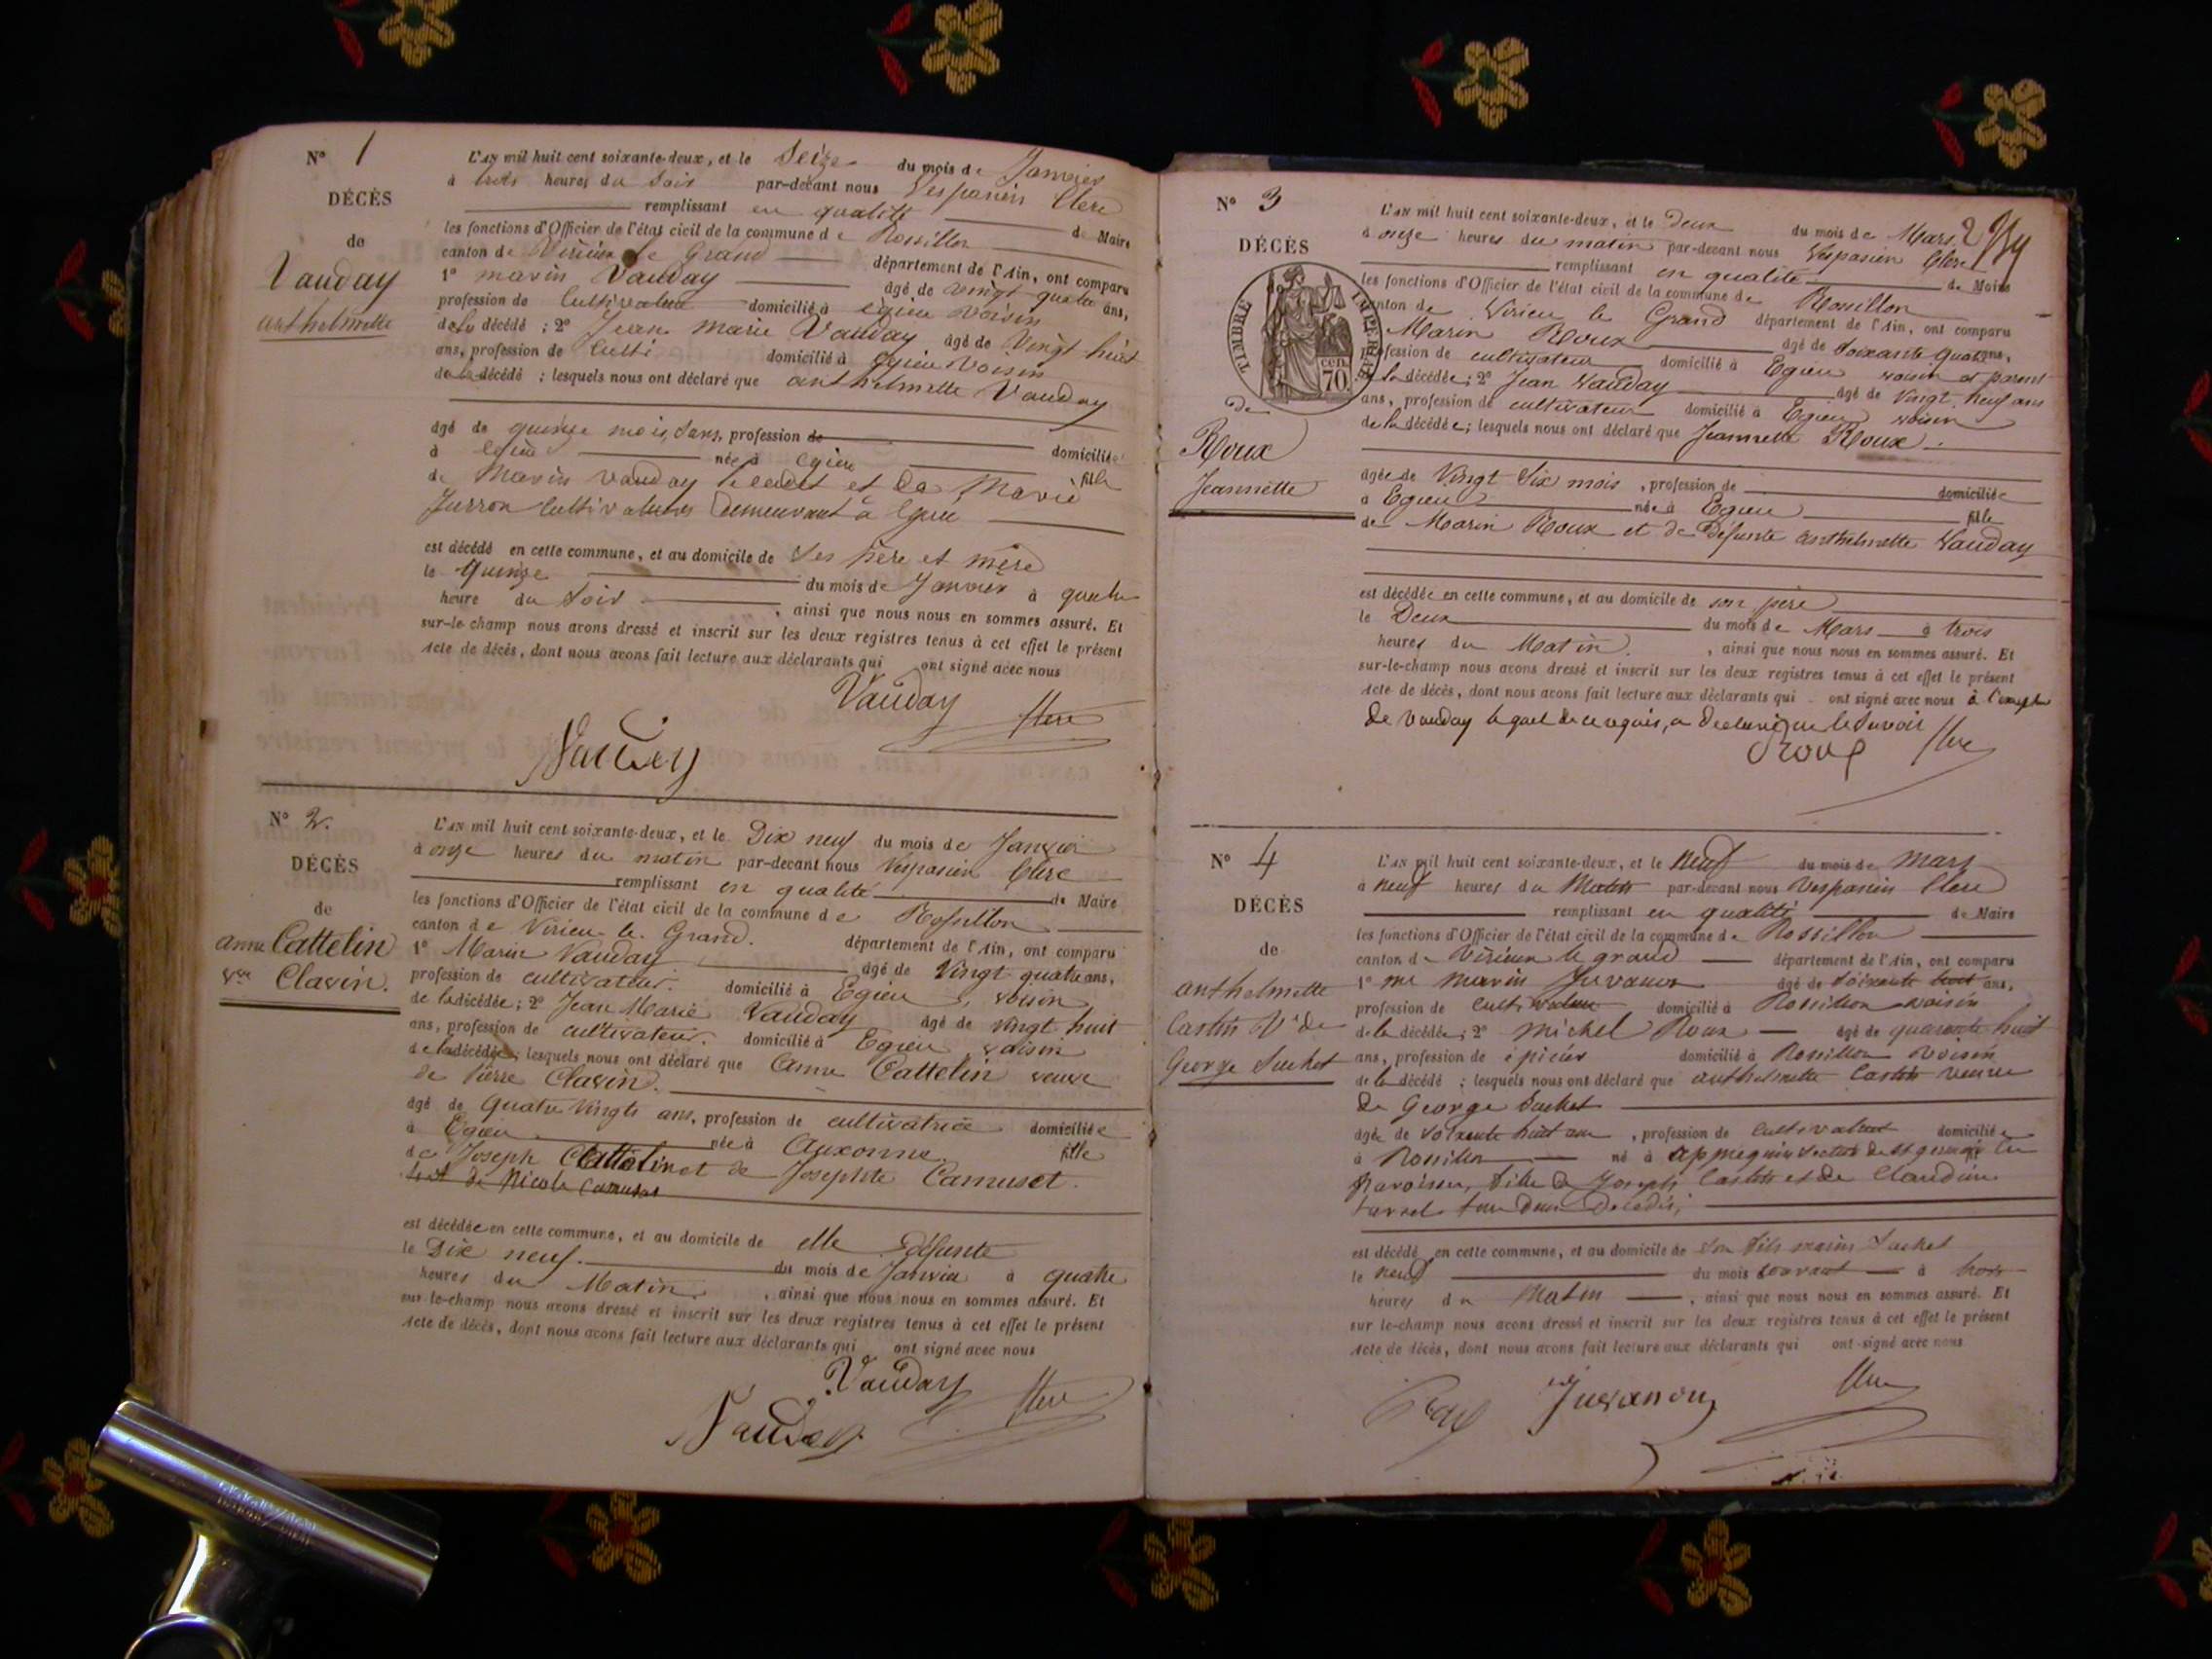 N° 1
DÉCÈS
de
Vauday
anthelmette
L'AN mil huit cent soixante-deux, et le Seize du mois de Janvier
à trois heures du Soir par-devant nous Vespasien Clerc
remplissant en qualité de Maire
les fonctions d'Officier de l'état civil de la commune de Rossillon
canton de Virieu le Grand département de l'Ain, ont comparu
1° marin Vauday âgé de vingt quatre ans,
profession de Cultivateur domicilié à égieu voisin
de la décédé ; 2° Jean marie Vauday âgé de Vingt huit
ans, profession de Culti domicilié à égieu Voisin
de la décédé ; lesquels nous ont déclaré que anthelmette Vauday
âgé de quinze mois, sans, profession de domicilié
à égieu née à égieu fille
de Marin Vauday le cadet et de Marie
Jurron Cultivateurs demeurant à égieu
est décédé en cette commune, et au domicile de Ses père et mère
le Quinze du mois de Janvier à quatre
heure du Soir , ainsi que nous nous en sommes assuré. Et
sur-le-champ nous avons dressé et inscrit sur les deux registres tenus à cet effet le présent
Acte de décès, dont nous avons fait lecture aux déclarants qui ont signé avec nous
Vauday Clerc
Vauday
N° 2.
DÉCÈS
de
anne Cattelin
Vve Clavin.
L'AN mil huit cent soixante-deux, et le Dix neuf du mois de Janvier
à onze heures du matin par-devant nous Vespasien Clerc
remplissant en qualité de Maire
les fonctions d'Officier de l'état civil de la commune de Rossillon
canton de Virieu le Grand. département de l'Ain, ont comparu
1° Marin Vauday âgé de Vingt quatre ans,
profession de cultivateur. domicilié à Egieu, voisin
de la décédée ; 2° Jean Marie Vauday âgé de vingt huit
ans, profession de cultivateur. domicilié à Egieu voisin
de la décédée ; lesquels nous ont déclaré que Anne Cattelin veuve
de Pierre Clavin.
âgé de Quatre Vingts ans, profession de cultivatrice domiciliée
à Egieu née à Auxonne. fille
de Joseph Cattelin et de Josephte Camuset.
et de Nicole Camuset
est décédée en cette commune, et au domicile de elle défunte
le Dix neuf. du mois de Janvier à quatre
heures du Matin. , ainsi que nous nous en sommes assuré. Et
sur-le-champ nous avons dressé et inscrit sur les deux registres tenus à cet effet le présent
Acte de décès, dont nous avons fait lecture aux déclarants qui ont signé avec nous
Vauday Clerc
Vauday
2
N° 3
DÉCÈS
TIMBRE IMPÉRIAL
70 cen.
de
Roux
Jeannette
L'AN mil huit cent soixante-deux, et le Deux du mois de Mars
à onze heures du matin par-devant nous Vespasien Clerc
remplissant en qualité de Maire
les fonctions d'Officier de l'état civil de la commune de Rossillon
canton de Virieu le Grand département de l'Ain, ont comparu
Marin Roux âgé de Soixante Quatre ans,
profession de cultivateur domicilié à Egieu voisin et parent
de la décédée ; 2° Jean Vauday âgé de Vingt neuf ans
ans, profession de cultivateur domicilié à Egieu voisin
de la décédée ; lesquels nous ont déclaré que Jeannette Roux.
agée de Vingt Six mois , profession de domiciliée
à Egieu née à Egieu fille
de Marin Roux et de Défunte anthelmette Vauday
est décédée en cette commune, et au domicile de son père
le Deux du mois de Mars à trois
heures du Matin. , ainsi que nous nous en sommes assuré. Et
sur-le-champ nous avons dressé et inscrit sur les deux registres tenus à cet effet le présent
Acte de décès, dont nous avons fait lecture aux déclarants qui ont signé avec nous à l'exception
de Vauday lequel de ce requis, a declaré ne le Savoir
Roux Clerc
N° 4
DÉCÈS
de
anthelmette
Castin Vve de
George Suchet
L'AN mil huit cent soixante-deux, et le Neuf du mois de Mars
à neuf heures du Matin par-devant nous Vespasien Clerc
remplissant en qualité de Maire
les fonctions d'Officier de l'état civil de la commune de Rossillon
canton de Virieu le grand département de l'Ain, ont comparu
1° me marin Juvanon âgé de Soixante huit ans,
profession de Cultivateur domicilié à Rossillon voisin
de la décédée ; 2° michel Roux âgé de quarante huit
ans, profession de épicier domicilié à Rossillon voisin
de la décédé ; lesquels nous ont déclaré que anthelmette Castin veuve
de George Suchet
âgée de soixante huit ans , profession de Cultivateur domiciliée
à Rossillon né à section de St germain les
Paroisses, fille de Joseph Castin et de Claudine
tous Deux Décédés,
est décédé en cette commune, et au domicile de Son fils marin Suchet
le neuf du mois courant à trois
heures du Matin , ainsi que nous nous en sommes assuré. Et
sur-le-champ nous avons dressé et inscrit sur les deux registres tenus à cet effet le présent
Acte de décès, dont nous avons fait lecture aux déclarants qui ont signé avec nous
Juvanon Clerc